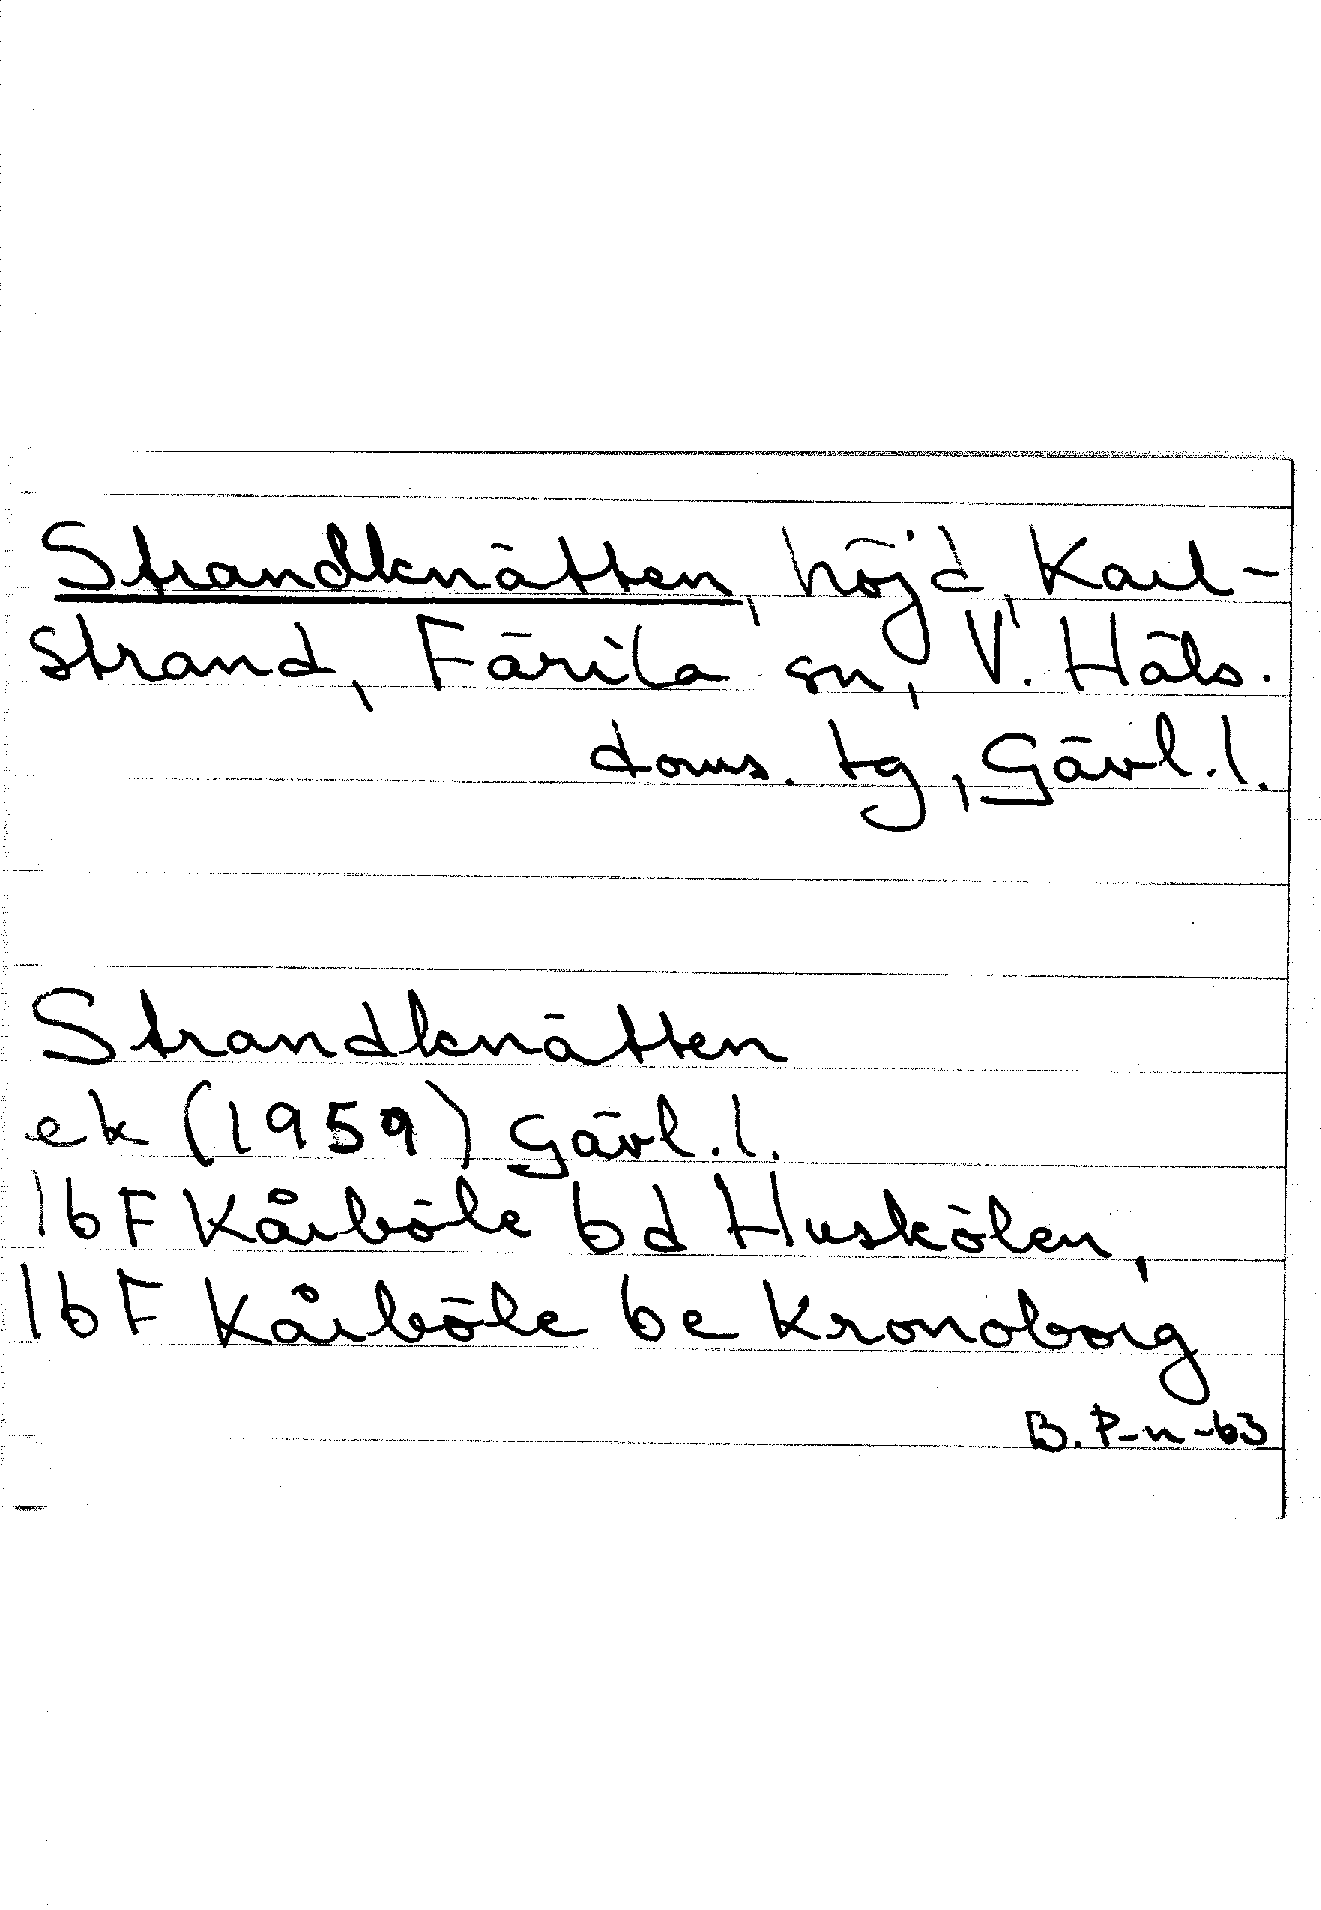 Strandknätten, höjd, Karl-
strand, Färila sn, V. Häls.
doms. tg, Gävl.l.
Strandknätten
ek (1959) Gävl.l.
16F Kårböle 6d Huskölen,
16F Kårböle 6e Kronoborg
B. P-n -63